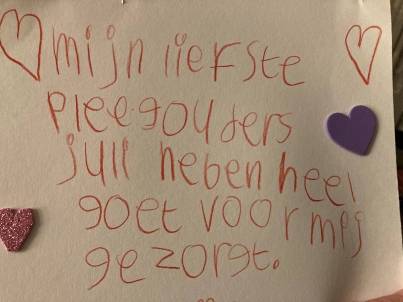 mijn liefste
pleegouders
jull heben heel
goet voor mij
gezorgt.